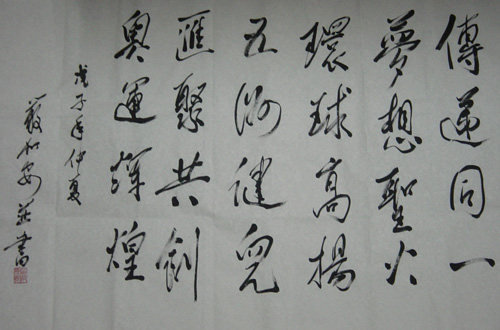 傳遞同一
夢想聖火
環球高揚
五洲健兒
匯聚共創
奧運輝煌
戊子年仲夏
書